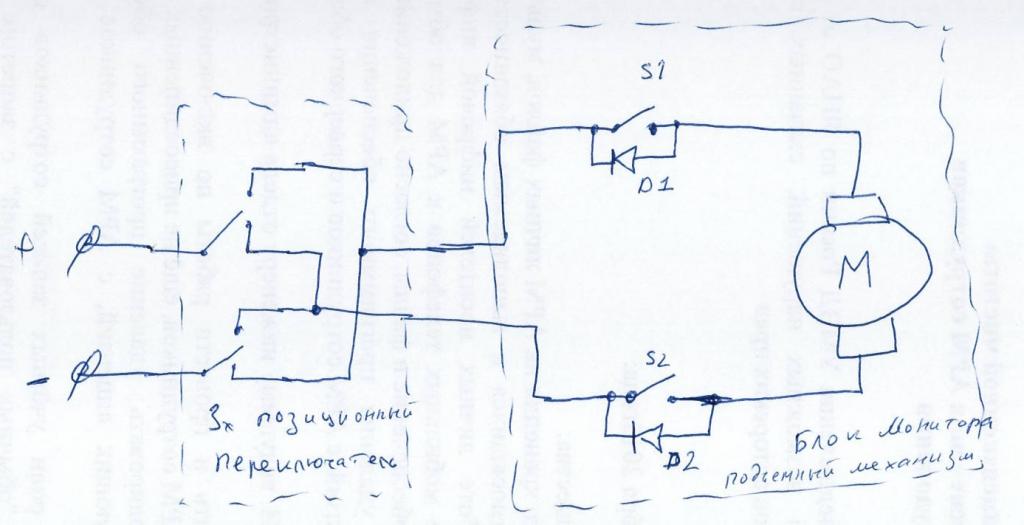 S1
D1
+
M
-
S2
D2
3х позиционный
переключатель
Блок Монитора
подьемный механизм,